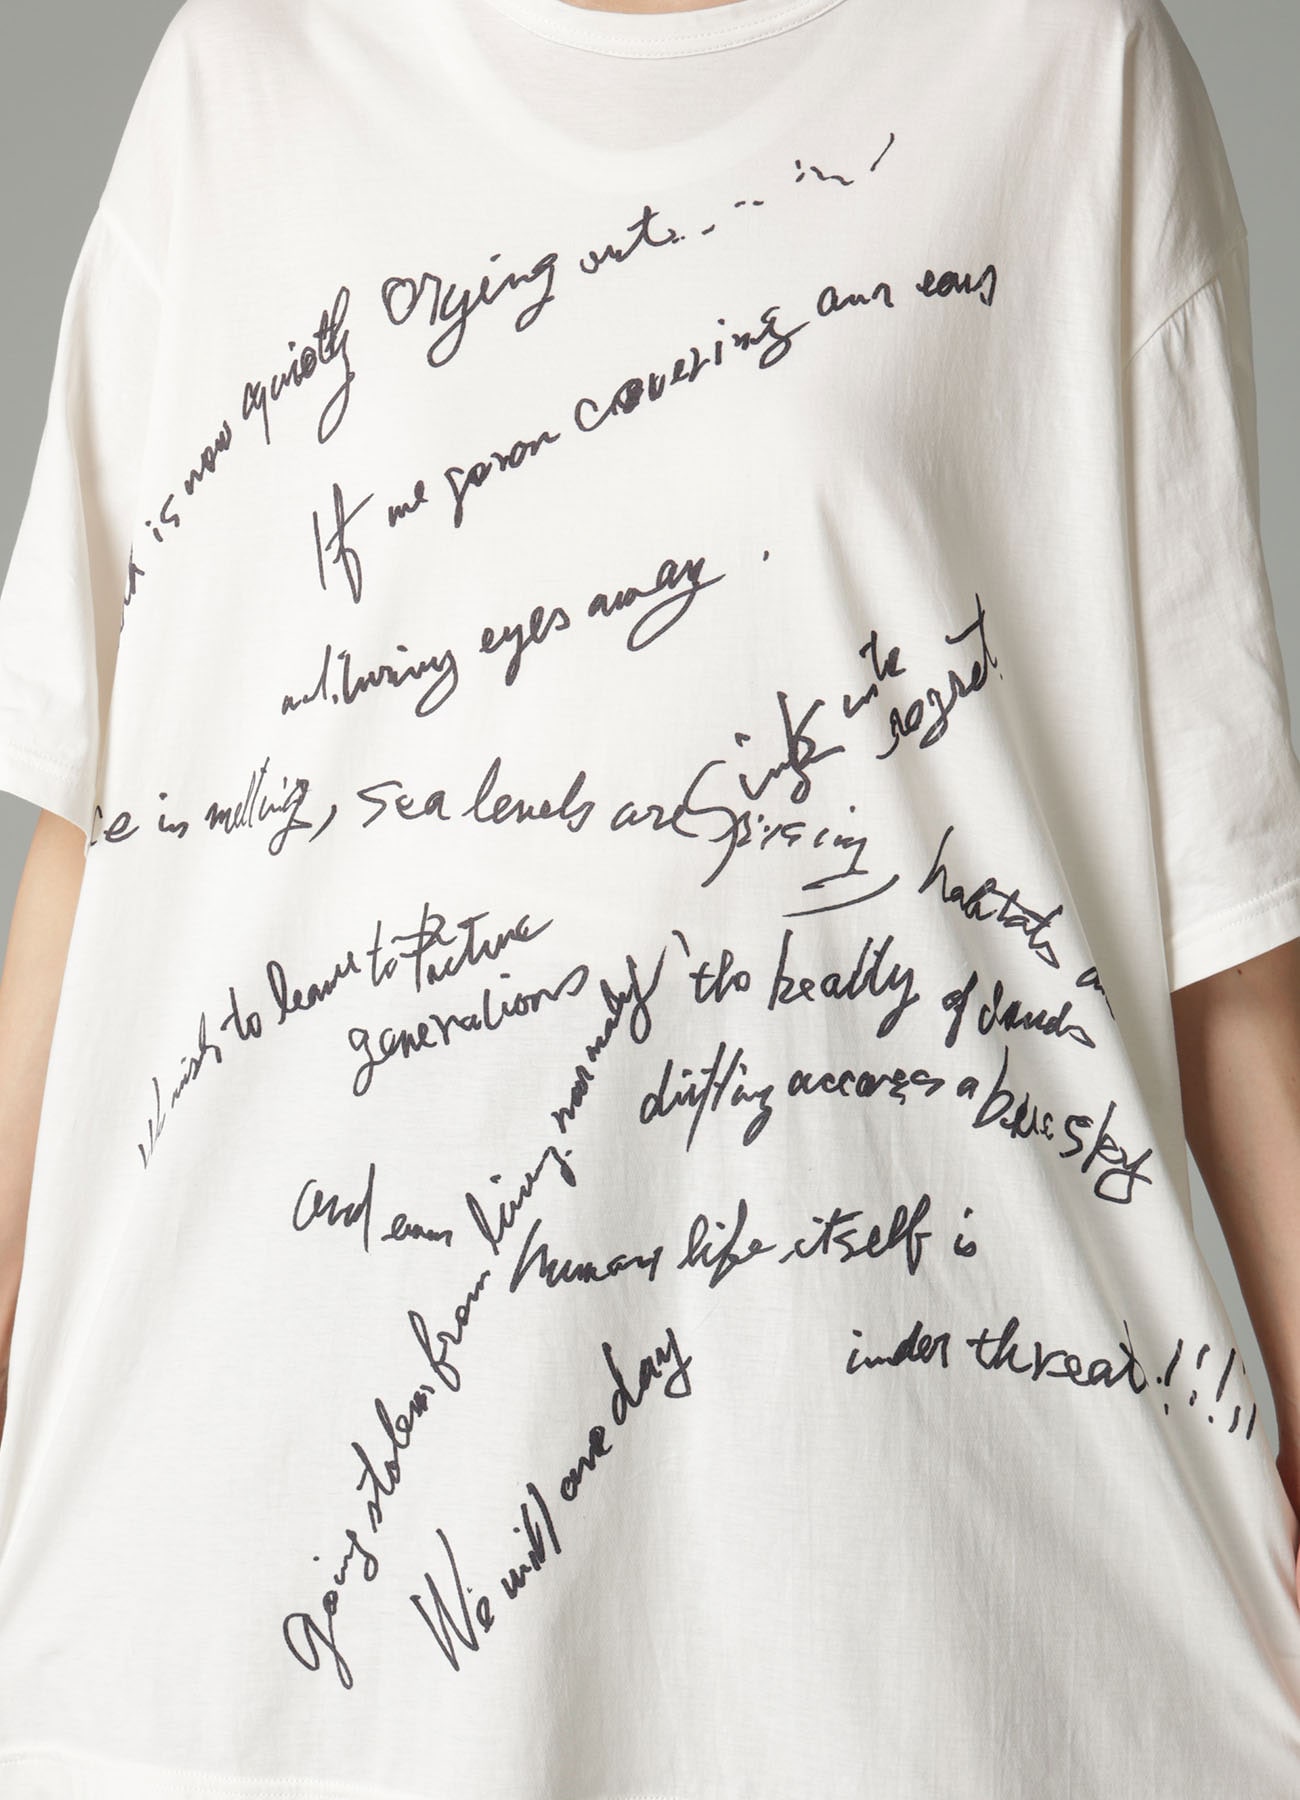 is now quietly crying out...
If we go on covering our ears
and turning eyes away.
ice is melting, sea levels are rising
sink into
regret.
habitats
I wish to leave to future
generations
the beauty of clouds
drifting across a blue sky
and even
human life itself is
under threat!!!
going stolen from living normaly
We will one day